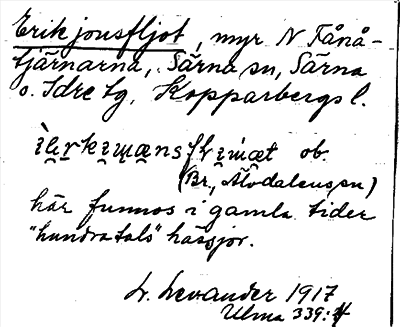 Erik jonsfljot, myr N Fånå-
tjärnarna, Särna sn, Särna
o. Idre tg, Kopparbergs l.
ob.
(Br., Älvdalens sn)
här funnos i gamla tider
"hundratals" hässjor.
L. Levander 1917
Ulma 339:4